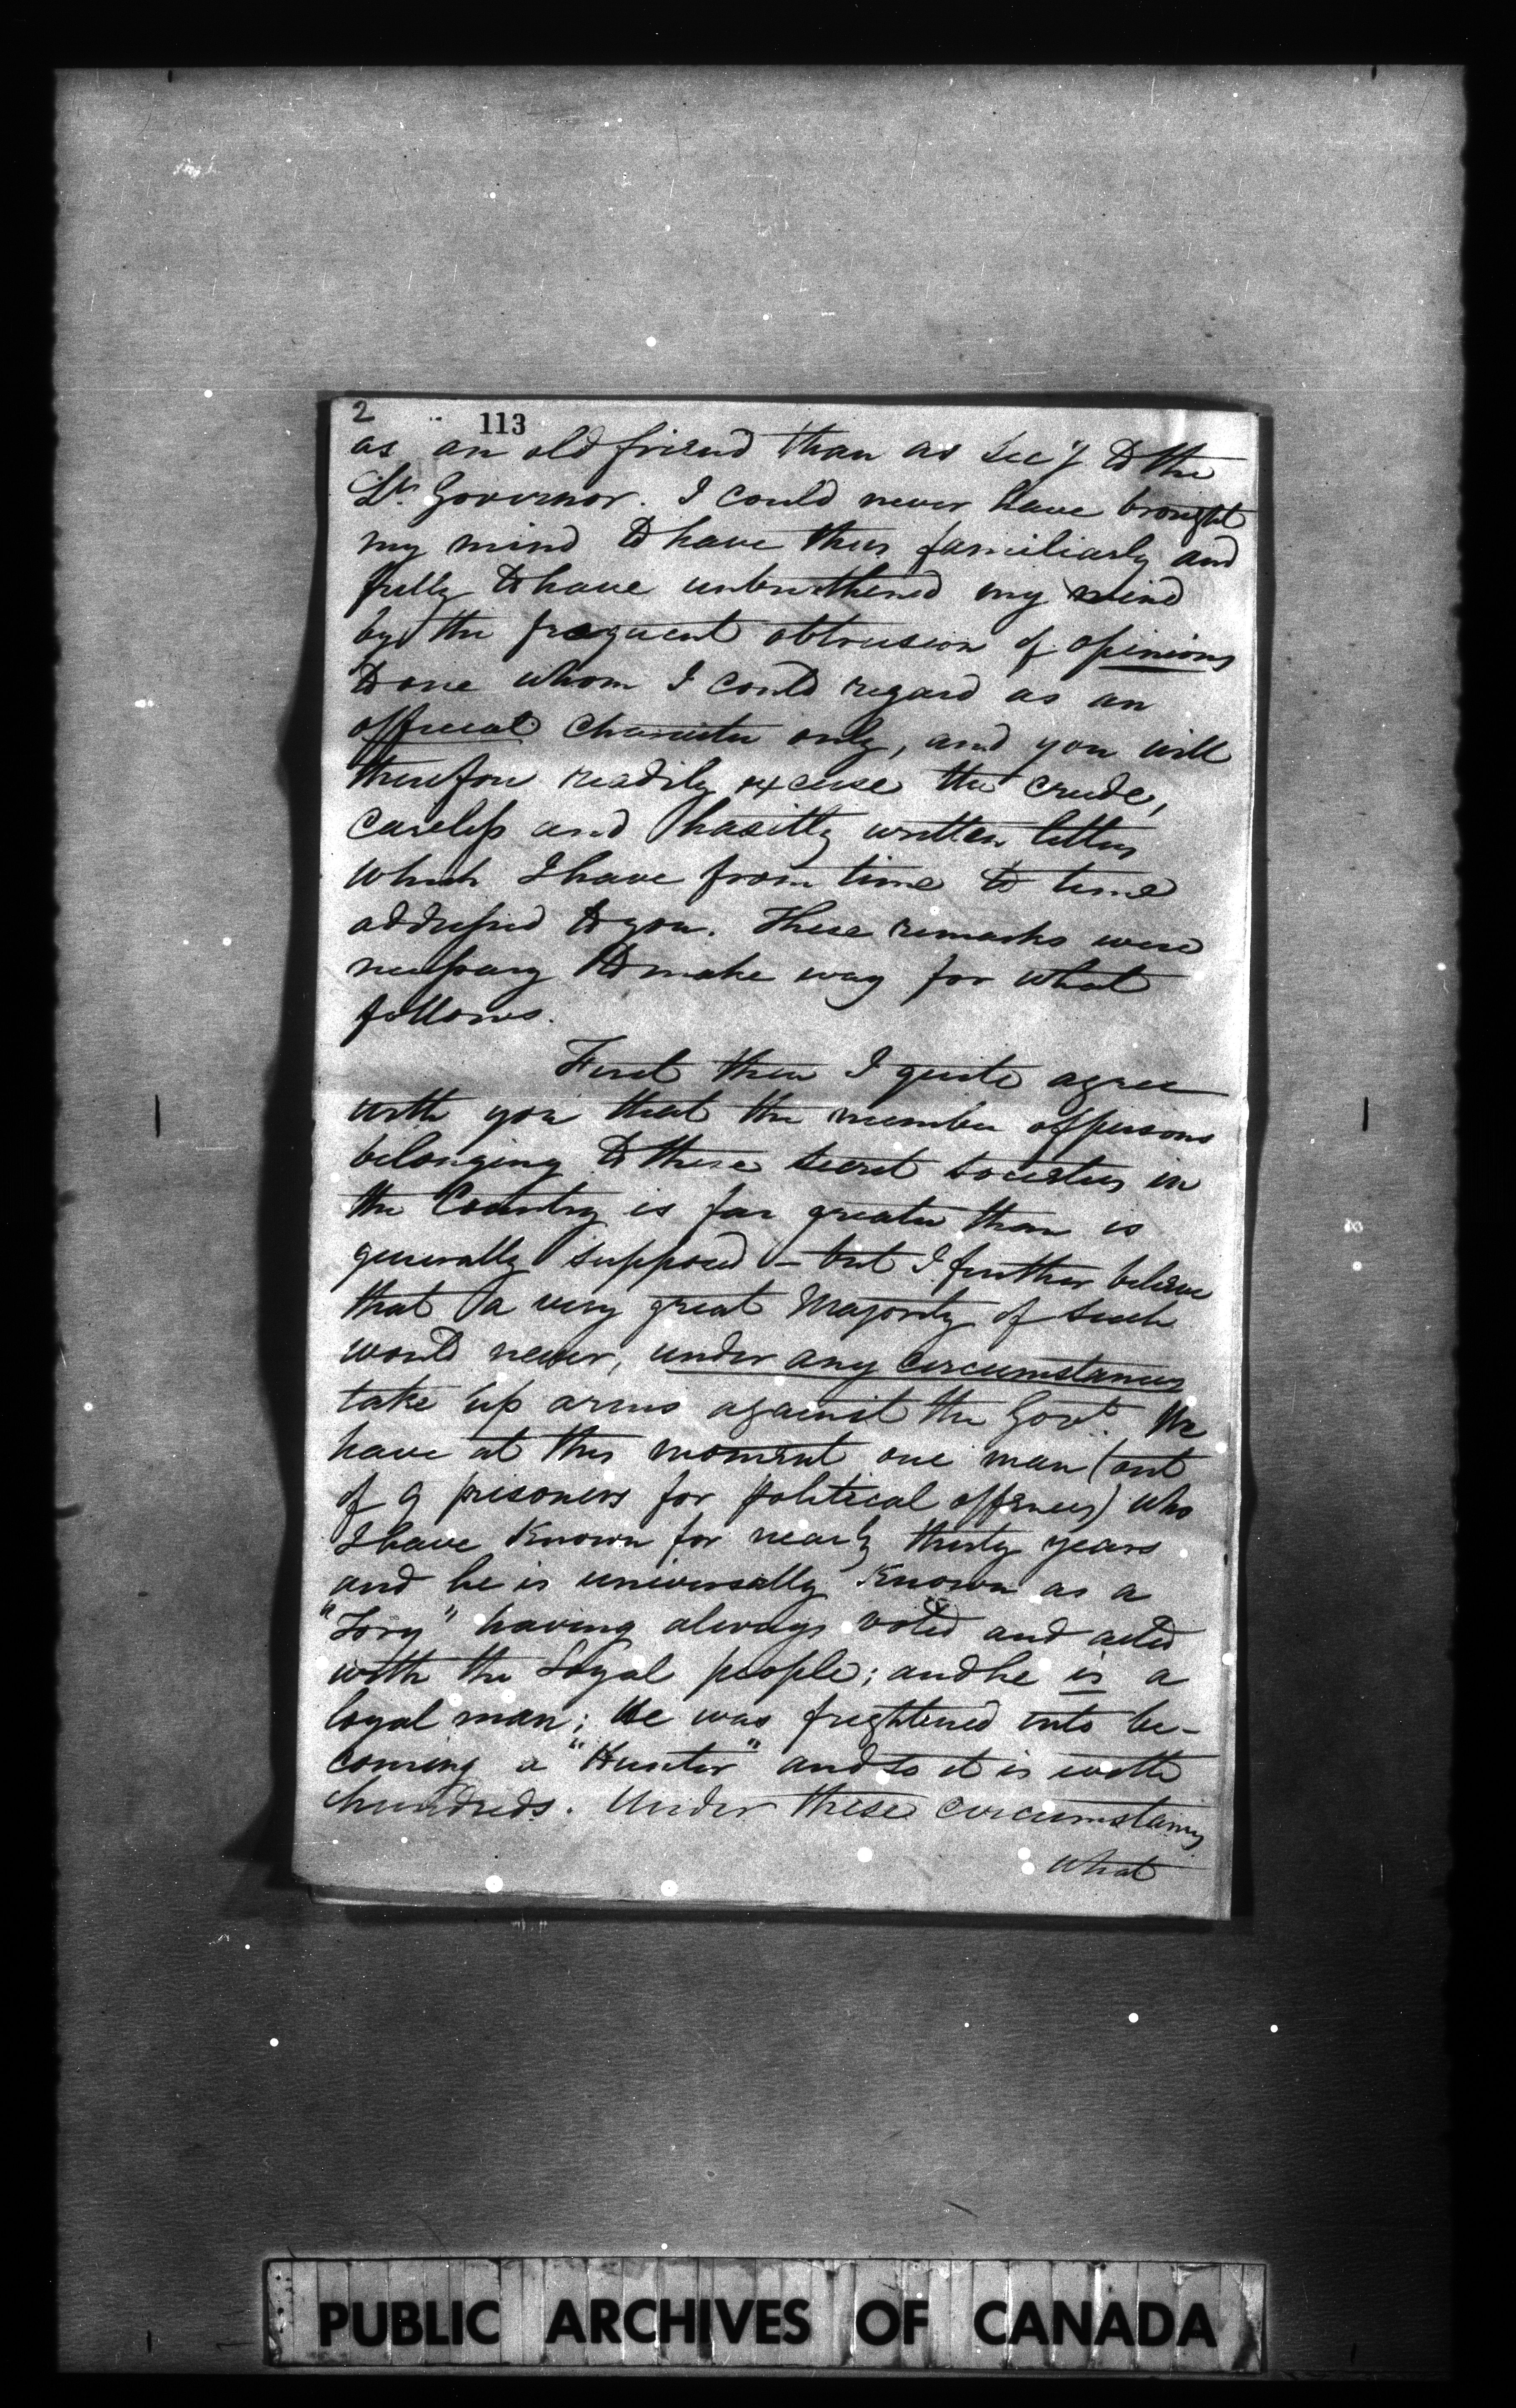 2
113
as an old friend than as Secy to the
Lt. Governor. I could never have brought
my mind to have thus familiarly and
fully to have unburthened my mind
by the frequent obtrusion of opinions
to one whom I could regard as an
official character only, and you will
therefore readily excuse the crude,
careless and hasitly written letters
which I have from time to time
addressed to you. These remarks were
necessary to make way for what
follows.
First then I quite agree
with you that the number of persons
belonging to these secret societies in
the Country is far greater than is
generally supposed – but I further believe
that a very great Majority of such
would never, under any circumstances
take up arms against the Govt. We
have at this moment one man (out
of 9 prisoners for political offences) who
I have known for nearly thirty years
and he is universally known as a
"Tory" having always voted and acted
with the Loyal people; and he is a
loyal man; He was frightened into be-
coming a "Hunter" and so it is with
hundreds. Under these circumstances
what
PUBLIC ARCHIVES OF CANADA